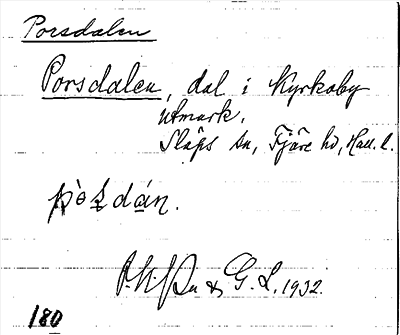 Porsdalen
Porsdalen, dal i Kyrkoby
utmark.
Släps sn, Fjäre hd, Hall. l.
pòʂdán.
& G. L. 1932.
180